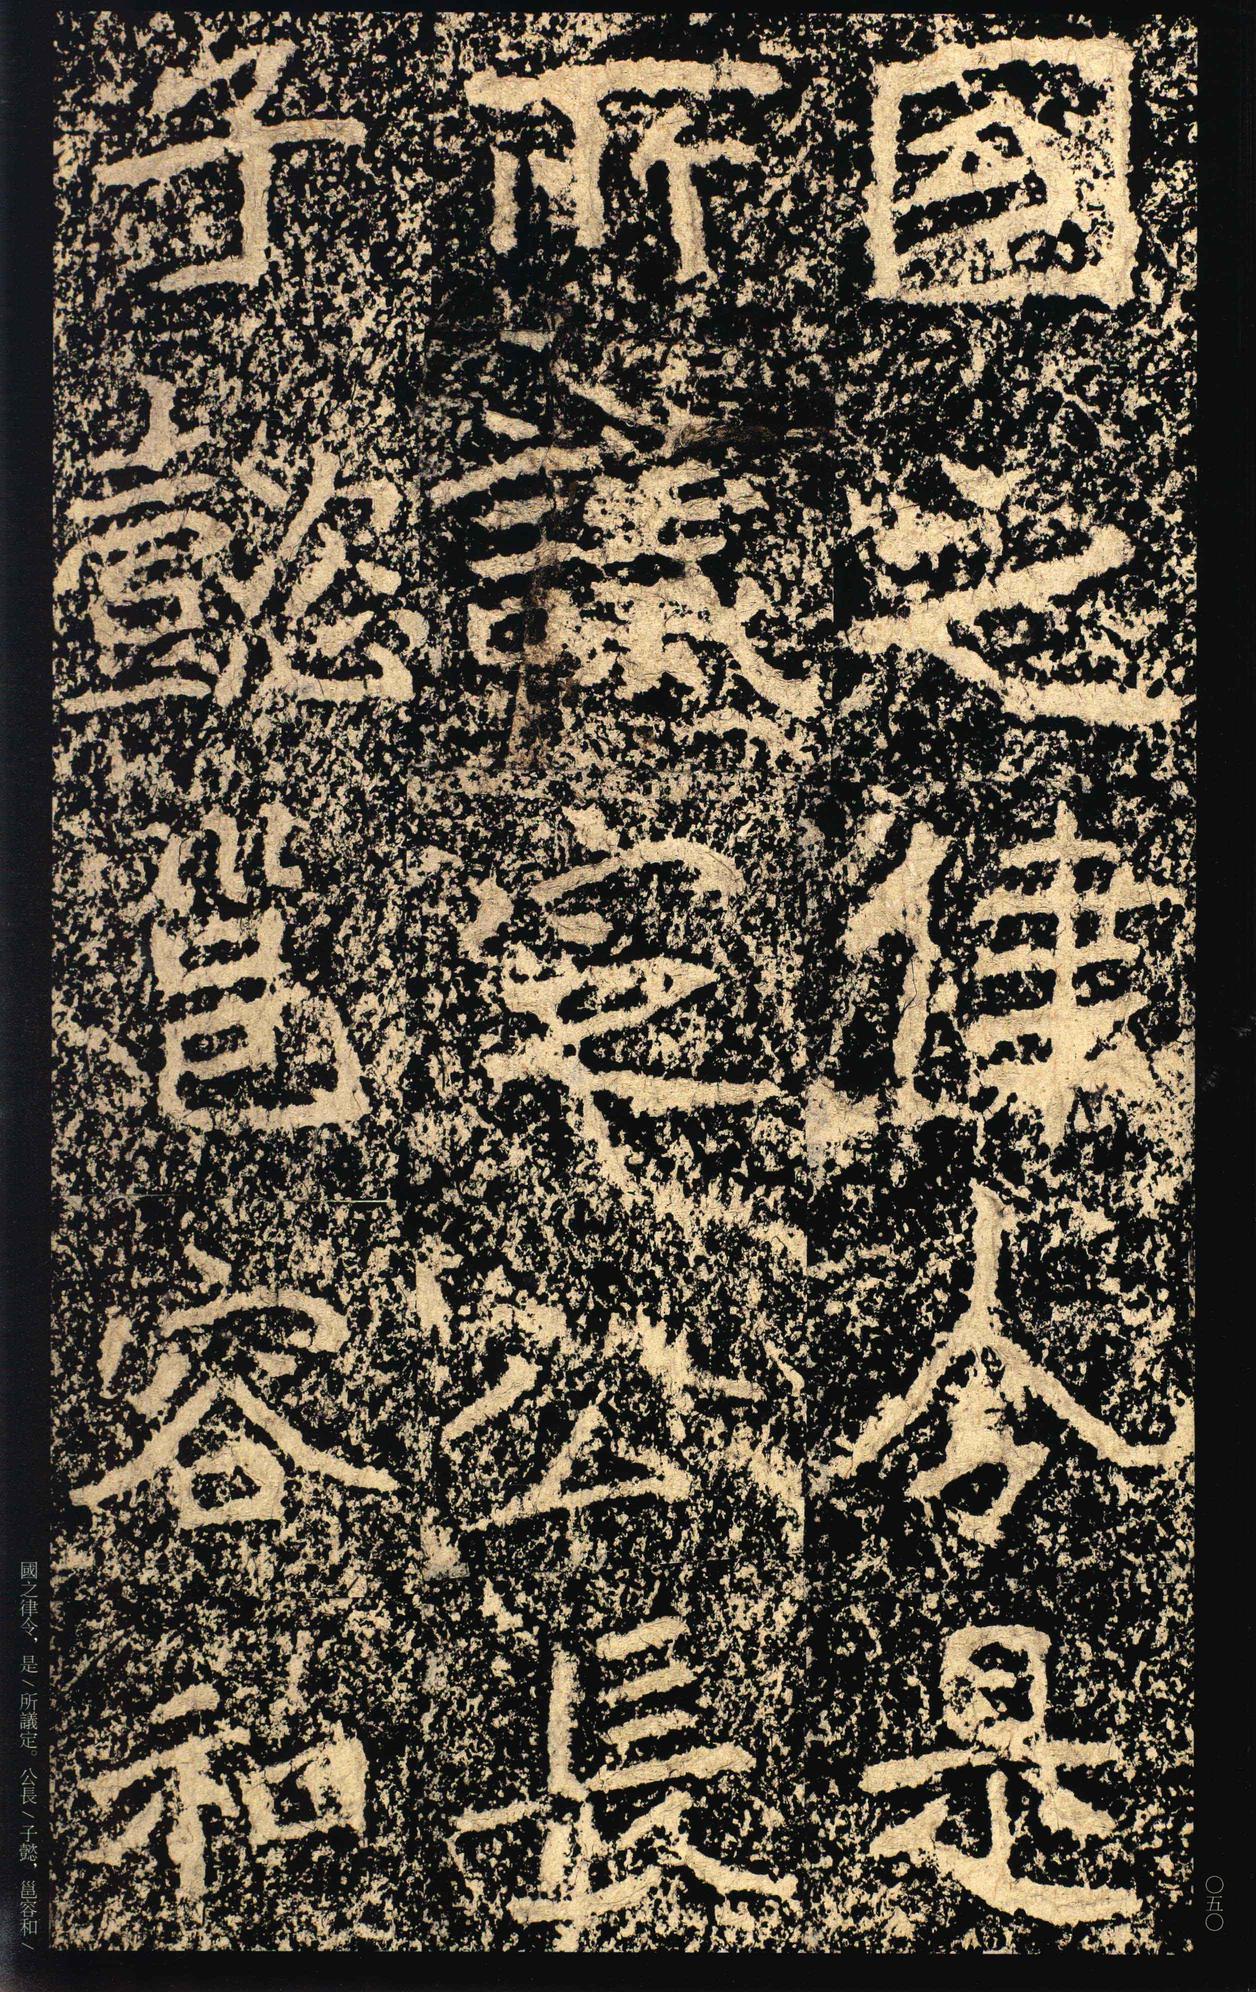 國之律令是
所議定公長
子懿邕容和
國之律令、是/所議定。公長/子懿、邕容和/
〇五〇